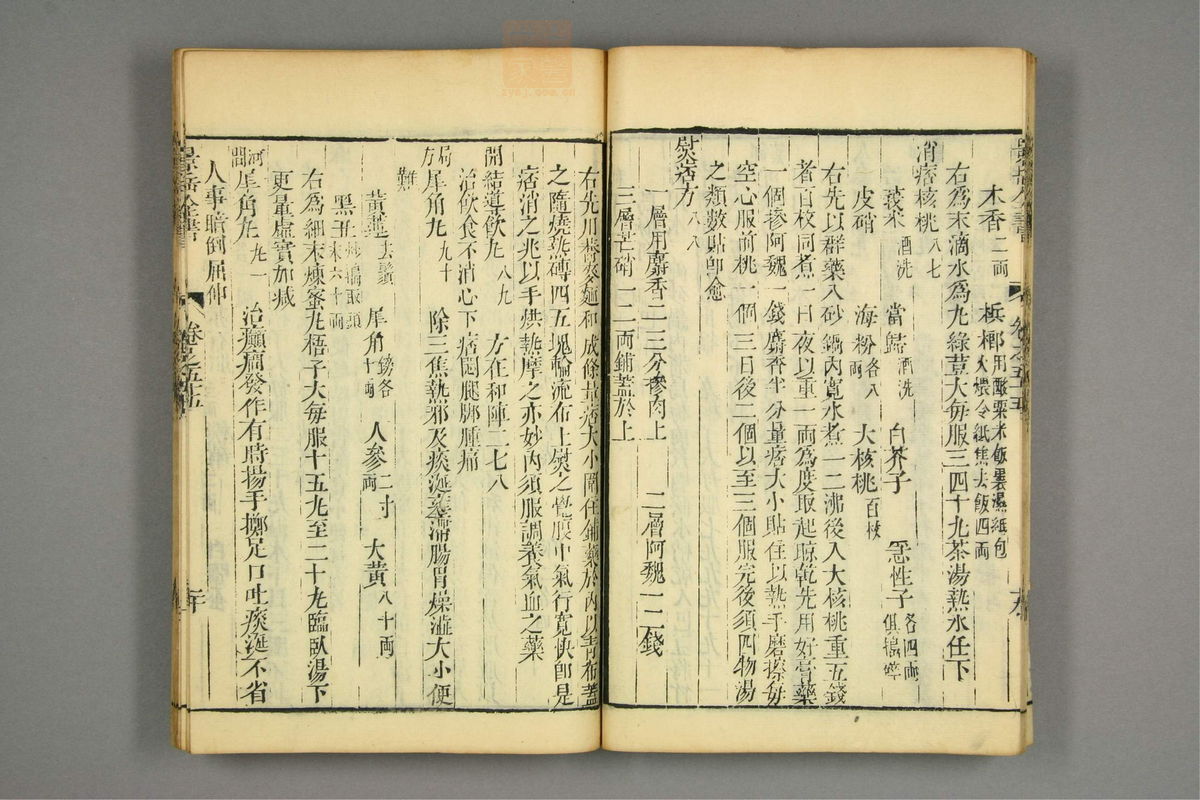 木香二両 梹榔用酸粟米飯裏濕紙包火煨令紙焦去飯四両
右為末滴水為丸綠豆大每服三四十丸茶湯熱水任下
消痞核桃八七
莪朮酒洗 當歸酒洗 白芥子 急性子各四両俱搗碎
皮硝 海粉各八両 大核桃百枚
右先以群藥入砂鍋內寬水煮一二沸後入大核桃重五錢
者百枚同煮一日夜以重一両為度取起晾乾先用好膏藥
一個摻阿魏一錢麝香半分量痞大小貼住以熱手磨擦每
空心服前桃一個三日後二個以至三個服完後須四物湯
之類數貼卽愈
熨痞方八八
一層用麝香二三分摻肉上 二層阿魏一二錢
三層芒硝一二両鋪蓋於上
右先用蕎麥麵和成條量痞大小圍住鋪藥於內以青布蓋
之隨燒熱磚四五塊輪流布上熨之覺腹中氣行寬快卽是
痞消之兆以手烘熱摩之亦妙內須服調養氣血之藥
開結導飲丸八九 方在和陣二七八
治飲食不消心下痞悶腿脚腫痛
局方犀角丸九十 除三焦熱邪及痰涎壅滯腸胃燥澁大小便
難
黃連去鬚 犀角鎊各十両 人參二両 大黃八十両
黑丑炒搗取頭末六十両
右為細末煉蜜丸梧子大每服十五丸至二十丸臨臥湯下
更量虛實加减
河間犀角丸九一 治癲癇發作有時揚手擲足口吐痰涎不省
人事暗倒屈伸
景岳全書 卷之五十五